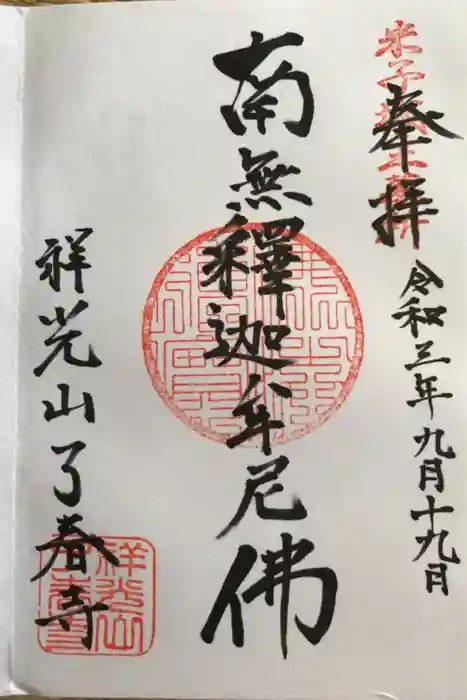 米子城主
奉拝
令和三年九月十九日
南無釋迦牟尼佛
祥光山了春寺
祥光山
了春寺